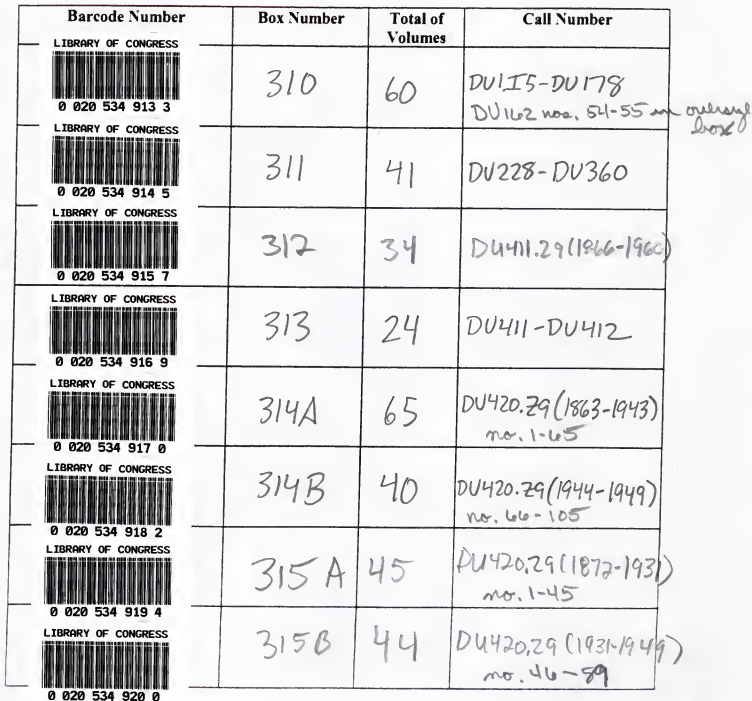 Barcode Number Box Number Total of Volumes Call Number
LIBRARY OF CONGRESS
0 020 534 913 3
310 60 DU1.I5-DU178
DU162 nos. 54-55 in oversize box
LIBRARY OF CONGRESS
0 020 534 914 5
311 41 DU228-DU360
LIBRARY OF CONGRESS
0 020 534 915 7
312 34 DU411.Z9(1866-1960)
LIBRARY OF CONGRESS
0 020 534 916 9
313 24 DU411-DU412
LIBRARY OF CONGRESS
0 020 534 917 0
314A 65 DU420.Z9(1863-1943)
no. 1-65
LIBRARY OF CONGRESS
0 020 534 918 2
314B 40 DU420.Z9(1944-1949)
no. 66-105
LIBRARY OF CONGRESS
0 020 534 919 4
315A 45 DU420.Z9(1872-1931)
no. 1-45
LIBRARY OF CONGRESS
0 020 534 920 0
315B 44 DU420.Z9(1931-1949)
no. 46-89